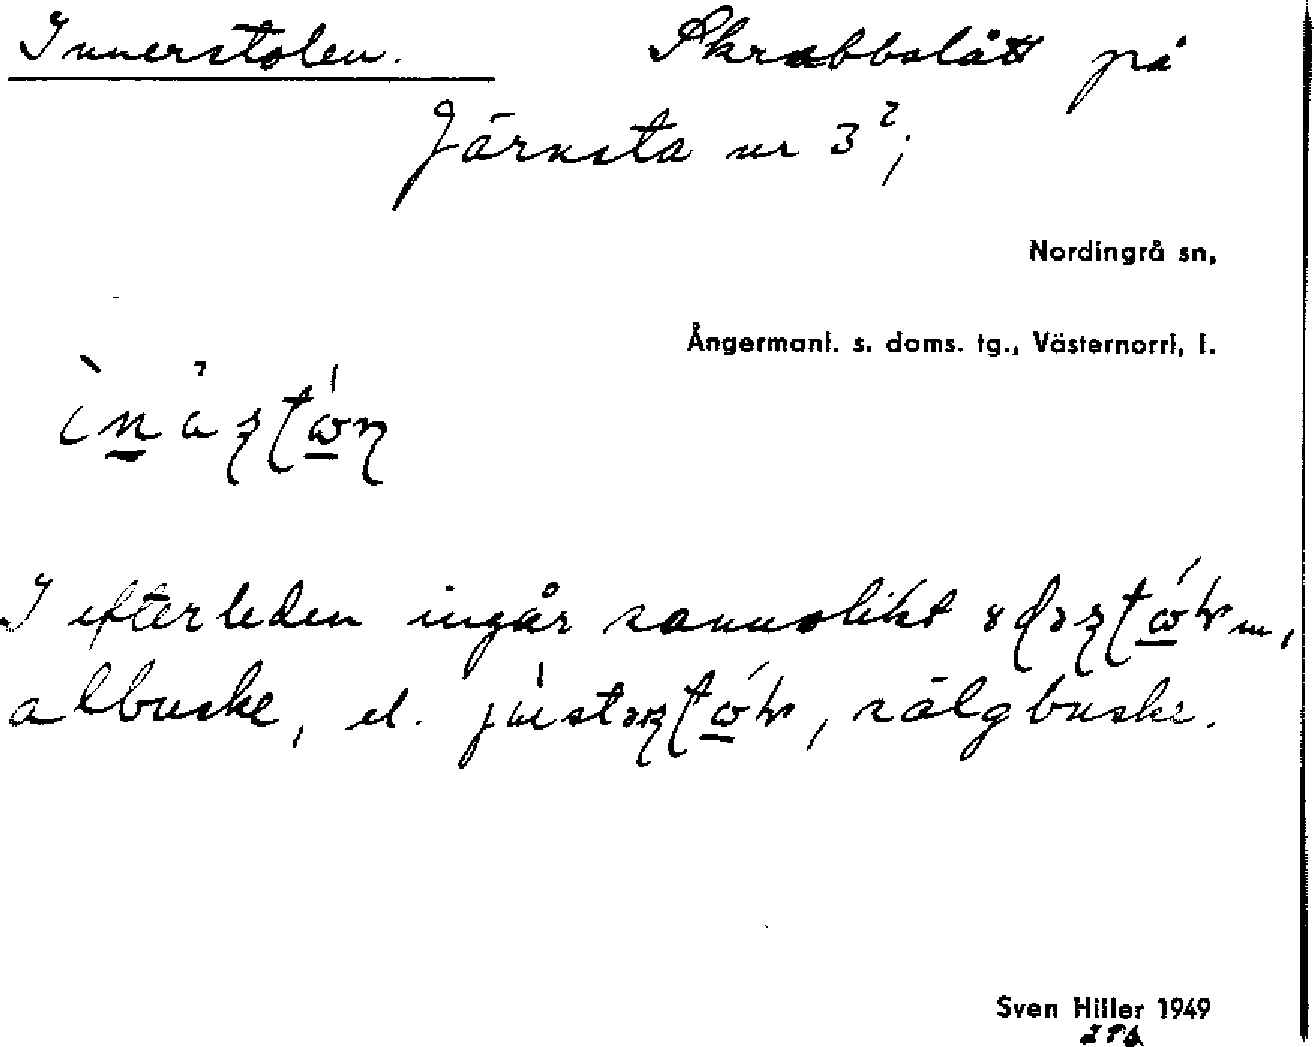 Innerstolen. Skrabbslått på
Järnsta nr 3²;
Nordingrå sn,
Ångermanl. s. doms. tg., Västernorrl, l.
I efterleden ingår sannolikt m,
albuske, el. , sälgbuske.
Sven Hiller 1949